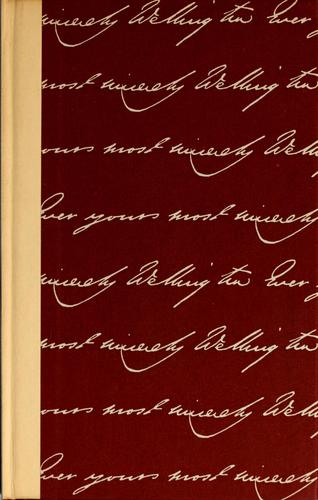 sincerely Wellington Ever y
most sincerely Wellington
yours most sincerely Welling
Ever yours most sincerely
sincerely Wellington Ever y
most sincerely Wellington
yours most sincerely Welling
Ever yours most sincerely